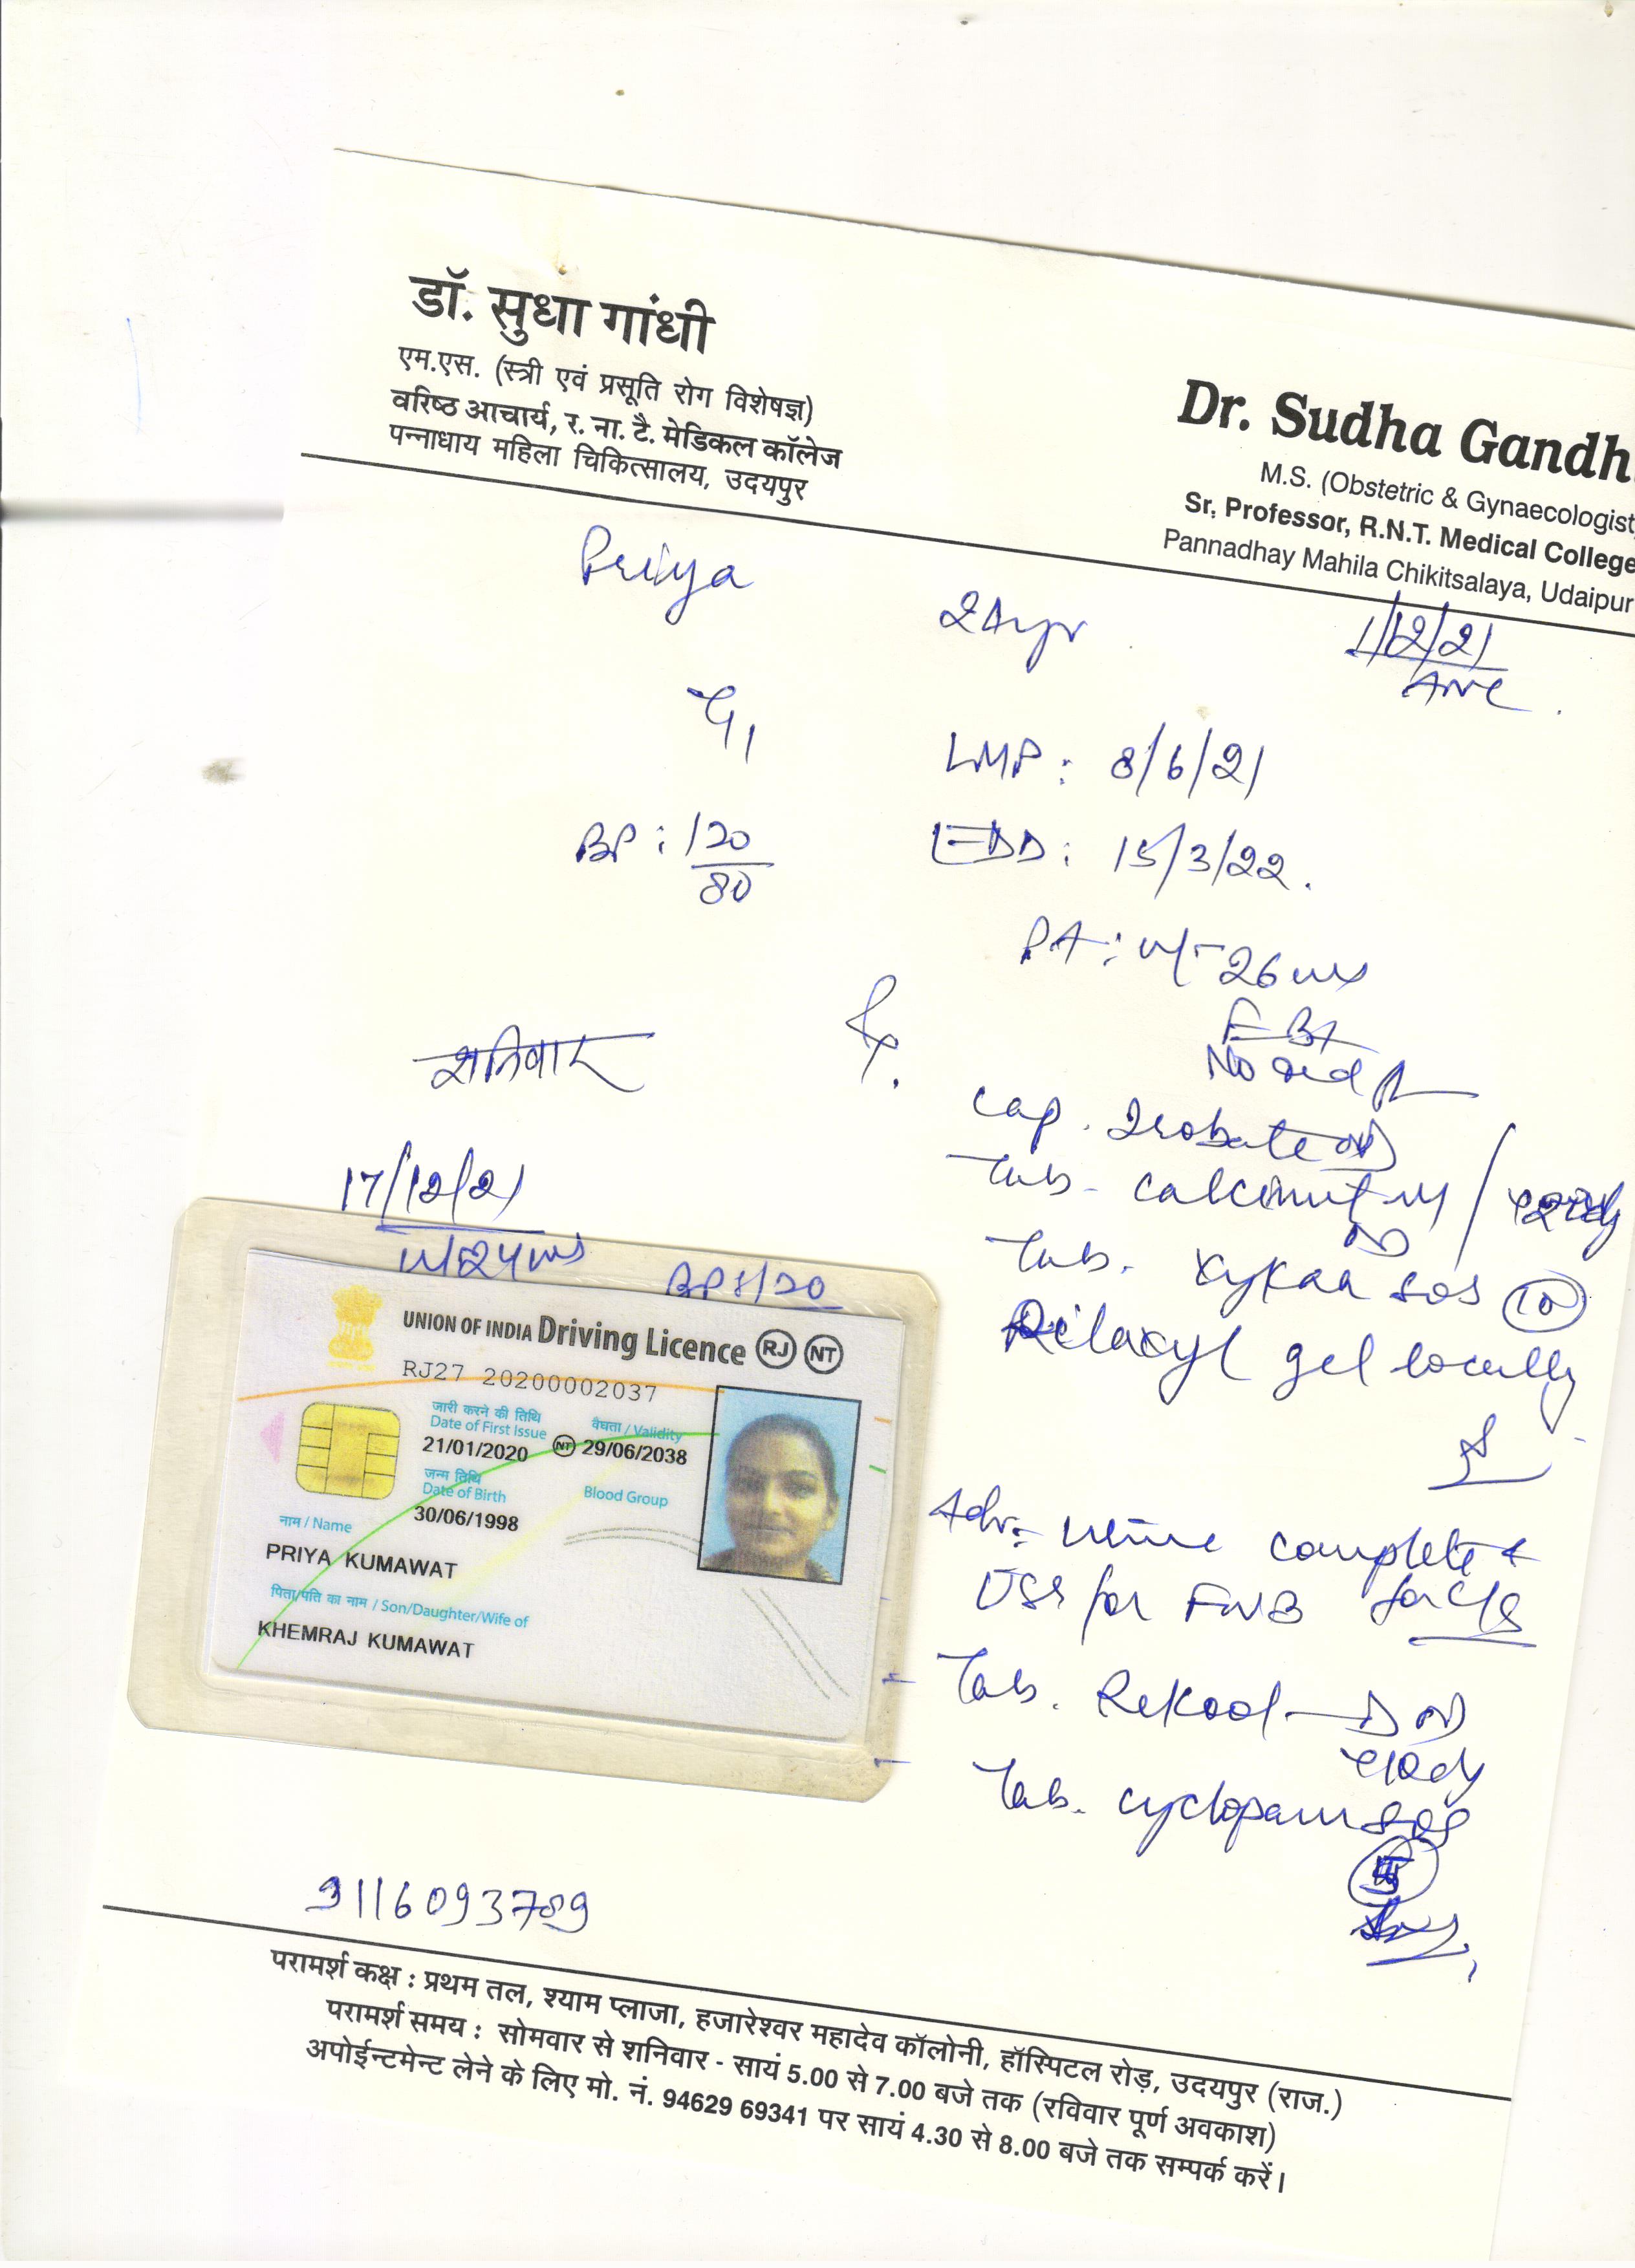 डॉ. सुधा गांधी
एम.एस. (स्त्री एवं प्रसूति रोग विशेषज्ञ)
वरिष्ठ आचार्य, र. ना. टै. मेडिकल कॉलेज
पन्नाधाय महिला चिकित्सालय, उदयपुर
Dr. Sudha Gandh
M.S. (Obstetric & Gynaecologist
Sr. Professor, R.N.T. Medical College
Pannadhay Mahila Chikitsalaya, Udaipur
Priya 24yr 1/12/21
ANC
G1 LMP: 8/6/21
BP: 120/80 EDD: 15/3/22.
PA: 26
शनिवार Rx.
No
Cap.
Tab. Calcimut
Tab. sos 10
gel locally
17/12/21
BP 120
UNION OF INDIA Driving Licence RJ NT
RJ27 20200002037
जारी करने की तिथि
Date of First Issue
21/01/2020
NT
वैधता / Validity
29/06/2038
जन्म तिथि
Date of Birth
30/06/1998
Blood Group
नाम / Name
PRIYA KUMAWAT
पिता/पति का नाम / Son/Daughter/Wife of
KHEMRAJ KUMAWAT
Adv: urine complete &
for FWB for C/S
Tab. Rekool-D
Tab. cyclopam sos
9116093789
परामर्श कक्ष : प्रथम तल, श्याम प्लाजा, हजारेश्वर महादेव कॉलोनी, हॉस्पिटल रोड़, उदयपुर (राज.)
परामर्श समय : सोमवार से शनिवार - सायं 5.00 से 7.00 बजे तक (रविवार पूर्ण अवकाश)
अपोईन्टमेन्ट लेने के लिए मो. नं. 94629 69341 पर सायं 4.30 से 8.00 बजे तक सम्पर्क करें।